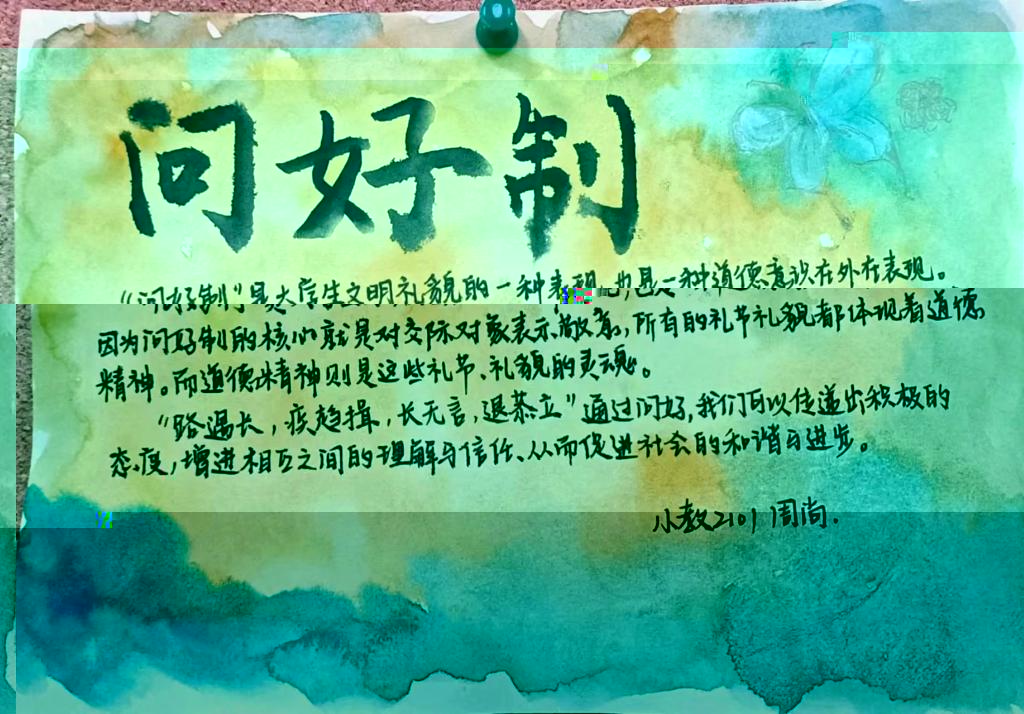 问好制
“问好制”是大学生文明礼貌的一种表现,也是一种道德意识在外在表现。
因为问好制的核心就是对交际对象表示敬意,所有的礼节礼貌都体现着道德
精神。而道德精神则是这些礼节、礼貌的灵魂。
“路遇长,疾趋揖,长无言,退恭立”通过问好,我们可以传递出积极的
态度,增进相互之间的理解与信任、从而促进社会的和谐与进步。
小教2101 周尚.